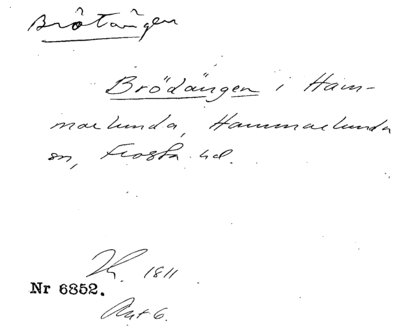 Brötången
Brödängen i Ham-
marlunda, Hammarlunda
sn, Frosta hd.
1811
Nr 6852.
Akt 6.